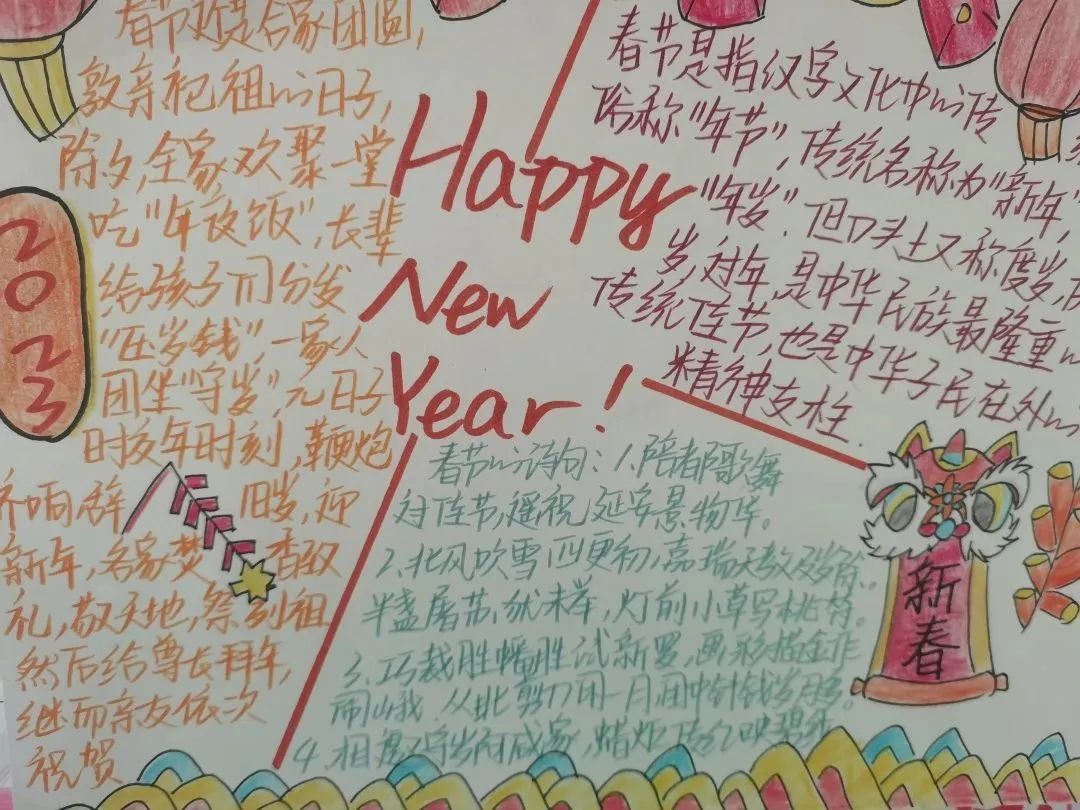 春节是合家团圆,
敦亲祀祖的日子,
除夕,全家欢聚一堂
吃"年夜饭",长辈
给孩子们分发
"压岁钱",一家人
团坐"守岁",元日子
时交年时刻,鞭炮
齐响辞 旧岁,迎
新年,各家焚 香致
礼,敬天地,祭列祖
然后给尊长拜年,
继而亲友依次
祝贺
2023
Happy
New
Year!
春节是指汉字文化中的传
俗称"年节",传统名称为"新年",
"年岁".但口头上又称度岁,
岁,过年,是中华民族最隆重的
传统佳节,也是中华子民在外的
精神支柱.
春节的诗句:1.陪都歌舞
对佳节,遥祝延安景物华。
2.北风吹雪四更初,嘉瑞天教及岁除。
半盏屠苏犹未举,灯前小草写桃符。
3.巧裁胜幡胜试新罗,画彩描金作
闹蛾 从此剪刀闲一月闺中针线岁
4.相邀守岁阿戎家,蜡炬传红映碧纱
新春